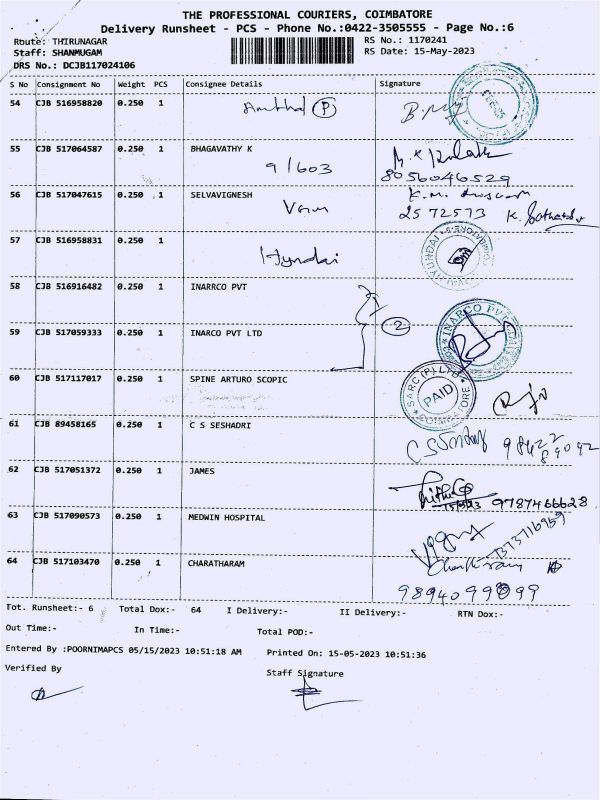 THE PROFESSIONAL COURIERS, COIMBATORE
Delivery Runsheet - PCS - Phone No.:0422-3505555 - Page No.:6
Route: THIRUNAGAR RS No.: 1170241
Staff: SHANMUGAM RS Date: 15-May-2023
DRS No.: DCJB117024106
S No Consignment No Weight PCS Consignee Details Signature
54 CJB 516958820 0.250 1 P
55 CJB 517064587 0.250 1 BHAGAVATHY K
9/603 8056046529
56 CJB 517047615 0.250 1 SELVAVIGNESH
2572573
57 CJB 516958831 0.250 1
Hyndai HYUNDAI
58 CJB 516916482 0.250 1 INARRCO PVT
2 INARCO PVT LTD
59 CJB 517059333 0.250 1 INARCO PVT LTD
60 CJB 517117017 0.250 1 SPINE ARTURO SCOPIC
SARC (P) LTD COIMBATORE PAID
61 CJB 89458165 0.250 1 C S SESHADRI
98422
89042
62 CJB 517051372 0.250 1 JAMES
9787466628
63 CJB 517090573 0.250 1 MEDWIN HOSPITAL
64 CJB 517103470 0.250 1 CHARATHARAM
Tot. Runsheet:- 6 Total Dox:- 64 I Delivery:- II Delivery:- RTN Dox:-
Out Time:- In Time:- Total POD:-
Entered By :POORNIMAPCS 05/15/2023 10:51:18 AM Printed On: 15-05-2023 10:51:36
Verified By Staff Signature